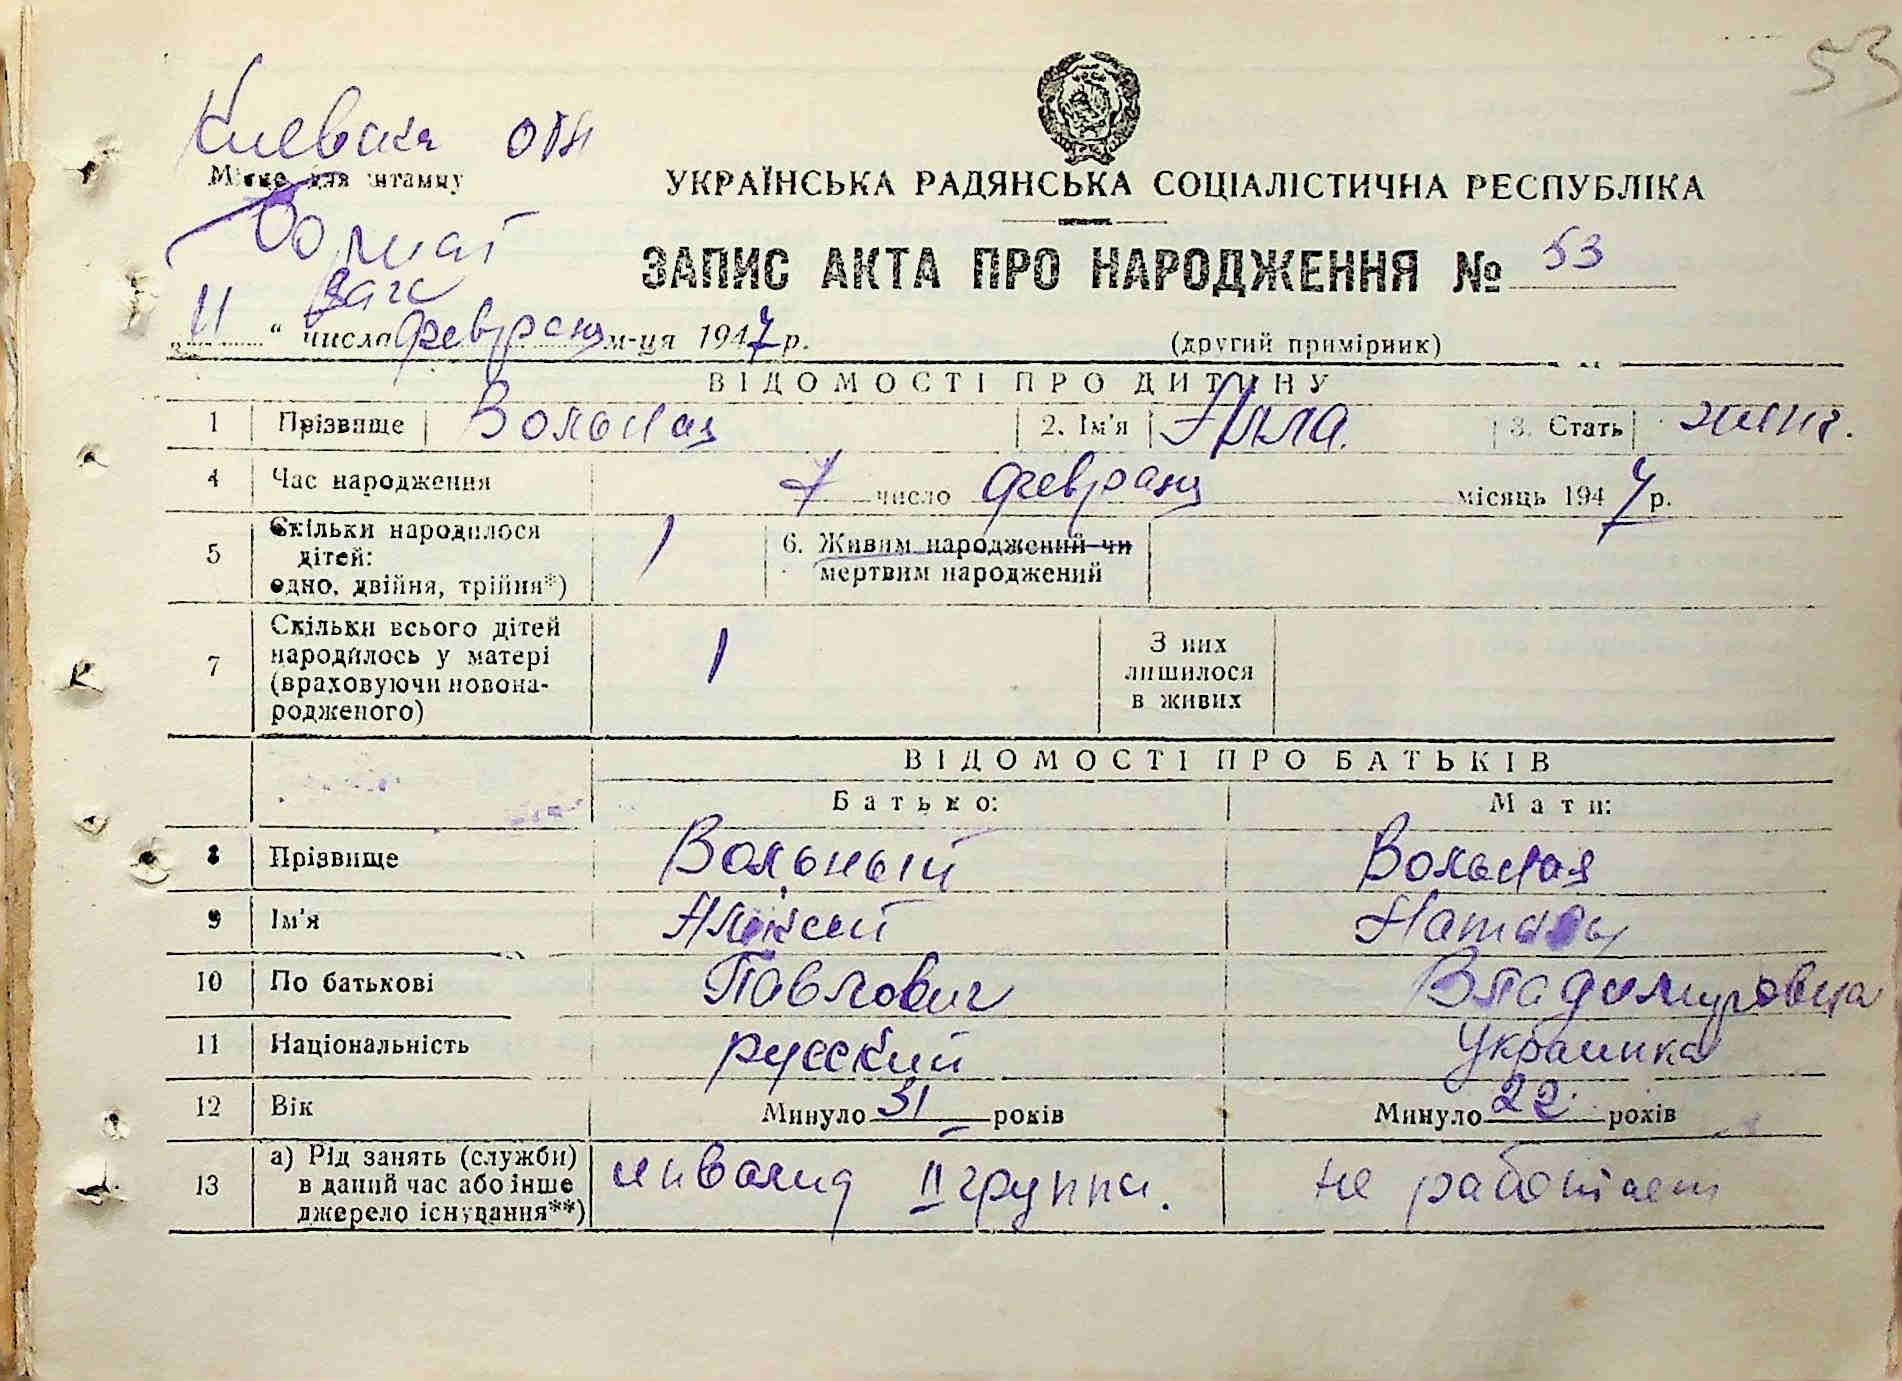 53
Киевская обл
Місце для штампу
УКРАЇНСЬКА РАДЯНСЬКА СОЦІАЛІСТИЧНА РЕСПУБЛІКА
ЗАПИС АКТА ПРО НАРОДЖЕННЯ № 53
"11" числа февраля м-ця 1947 р.
(другий примірник)
ВІДОМОСТІ ПРО ДИТИНУ
1 Прізвище Вольная 2. Ім'я Алла. 3. Стать женс.
4 Час народження 7 число февраля місяць 1947 р.
5 Скільки народилося дітей: одно, двійня, трійня*) 1 6. Живим народжений чи мертвим народжений
7 Скільки всього дітей народилось у матері (враховуючи новонародженого) 1 З них лишилося в живих
ВІДОМОСТІ ПРО БАТЬКІВ
Батько: Мати:
8 Прізвище Вольный Вольная
9 Ім'я Алексей
10 По батькові Павлович Владимировна
11 Національність русский Украинка
12 Вік Минуло 31 років Минуло 22 років
13 а) Рід занять (служби) в даний час або інше джерело існування**) инвалид II группы. не работает